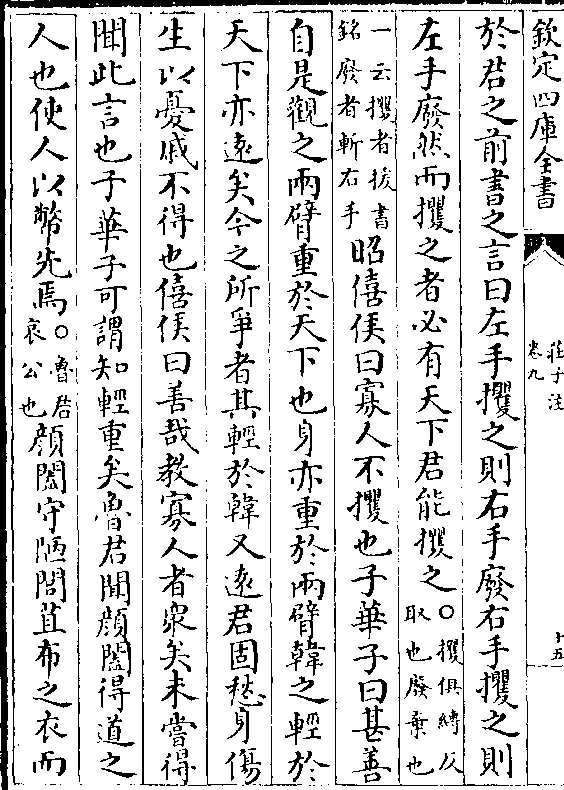 欽定四庫全書
莊子注
卷九
十五
於君之前書之言曰左手攫之則右手廢右手攫之則
左手廢然而攫之者必有天下君能攫之○攫俱縛反
取也廢棄也
一云攫者援書
銘廢者斬右手
昭僖侯曰寡人不攫也子華子曰甚善
自是觀之兩臂重於天下也身亦重於兩臂韓之輕於
天下亦遠矣今之所爭者其輕於韓又遠君固愁身傷
生以憂戚不得也僖侯曰善哉教寡人者衆矣未嘗得
聞此言也子華子可謂知輕重矣魯君聞顔闔得道之
人也使人以幣先焉○魯君
哀公也
顔闔守陋閭苴布之衣而